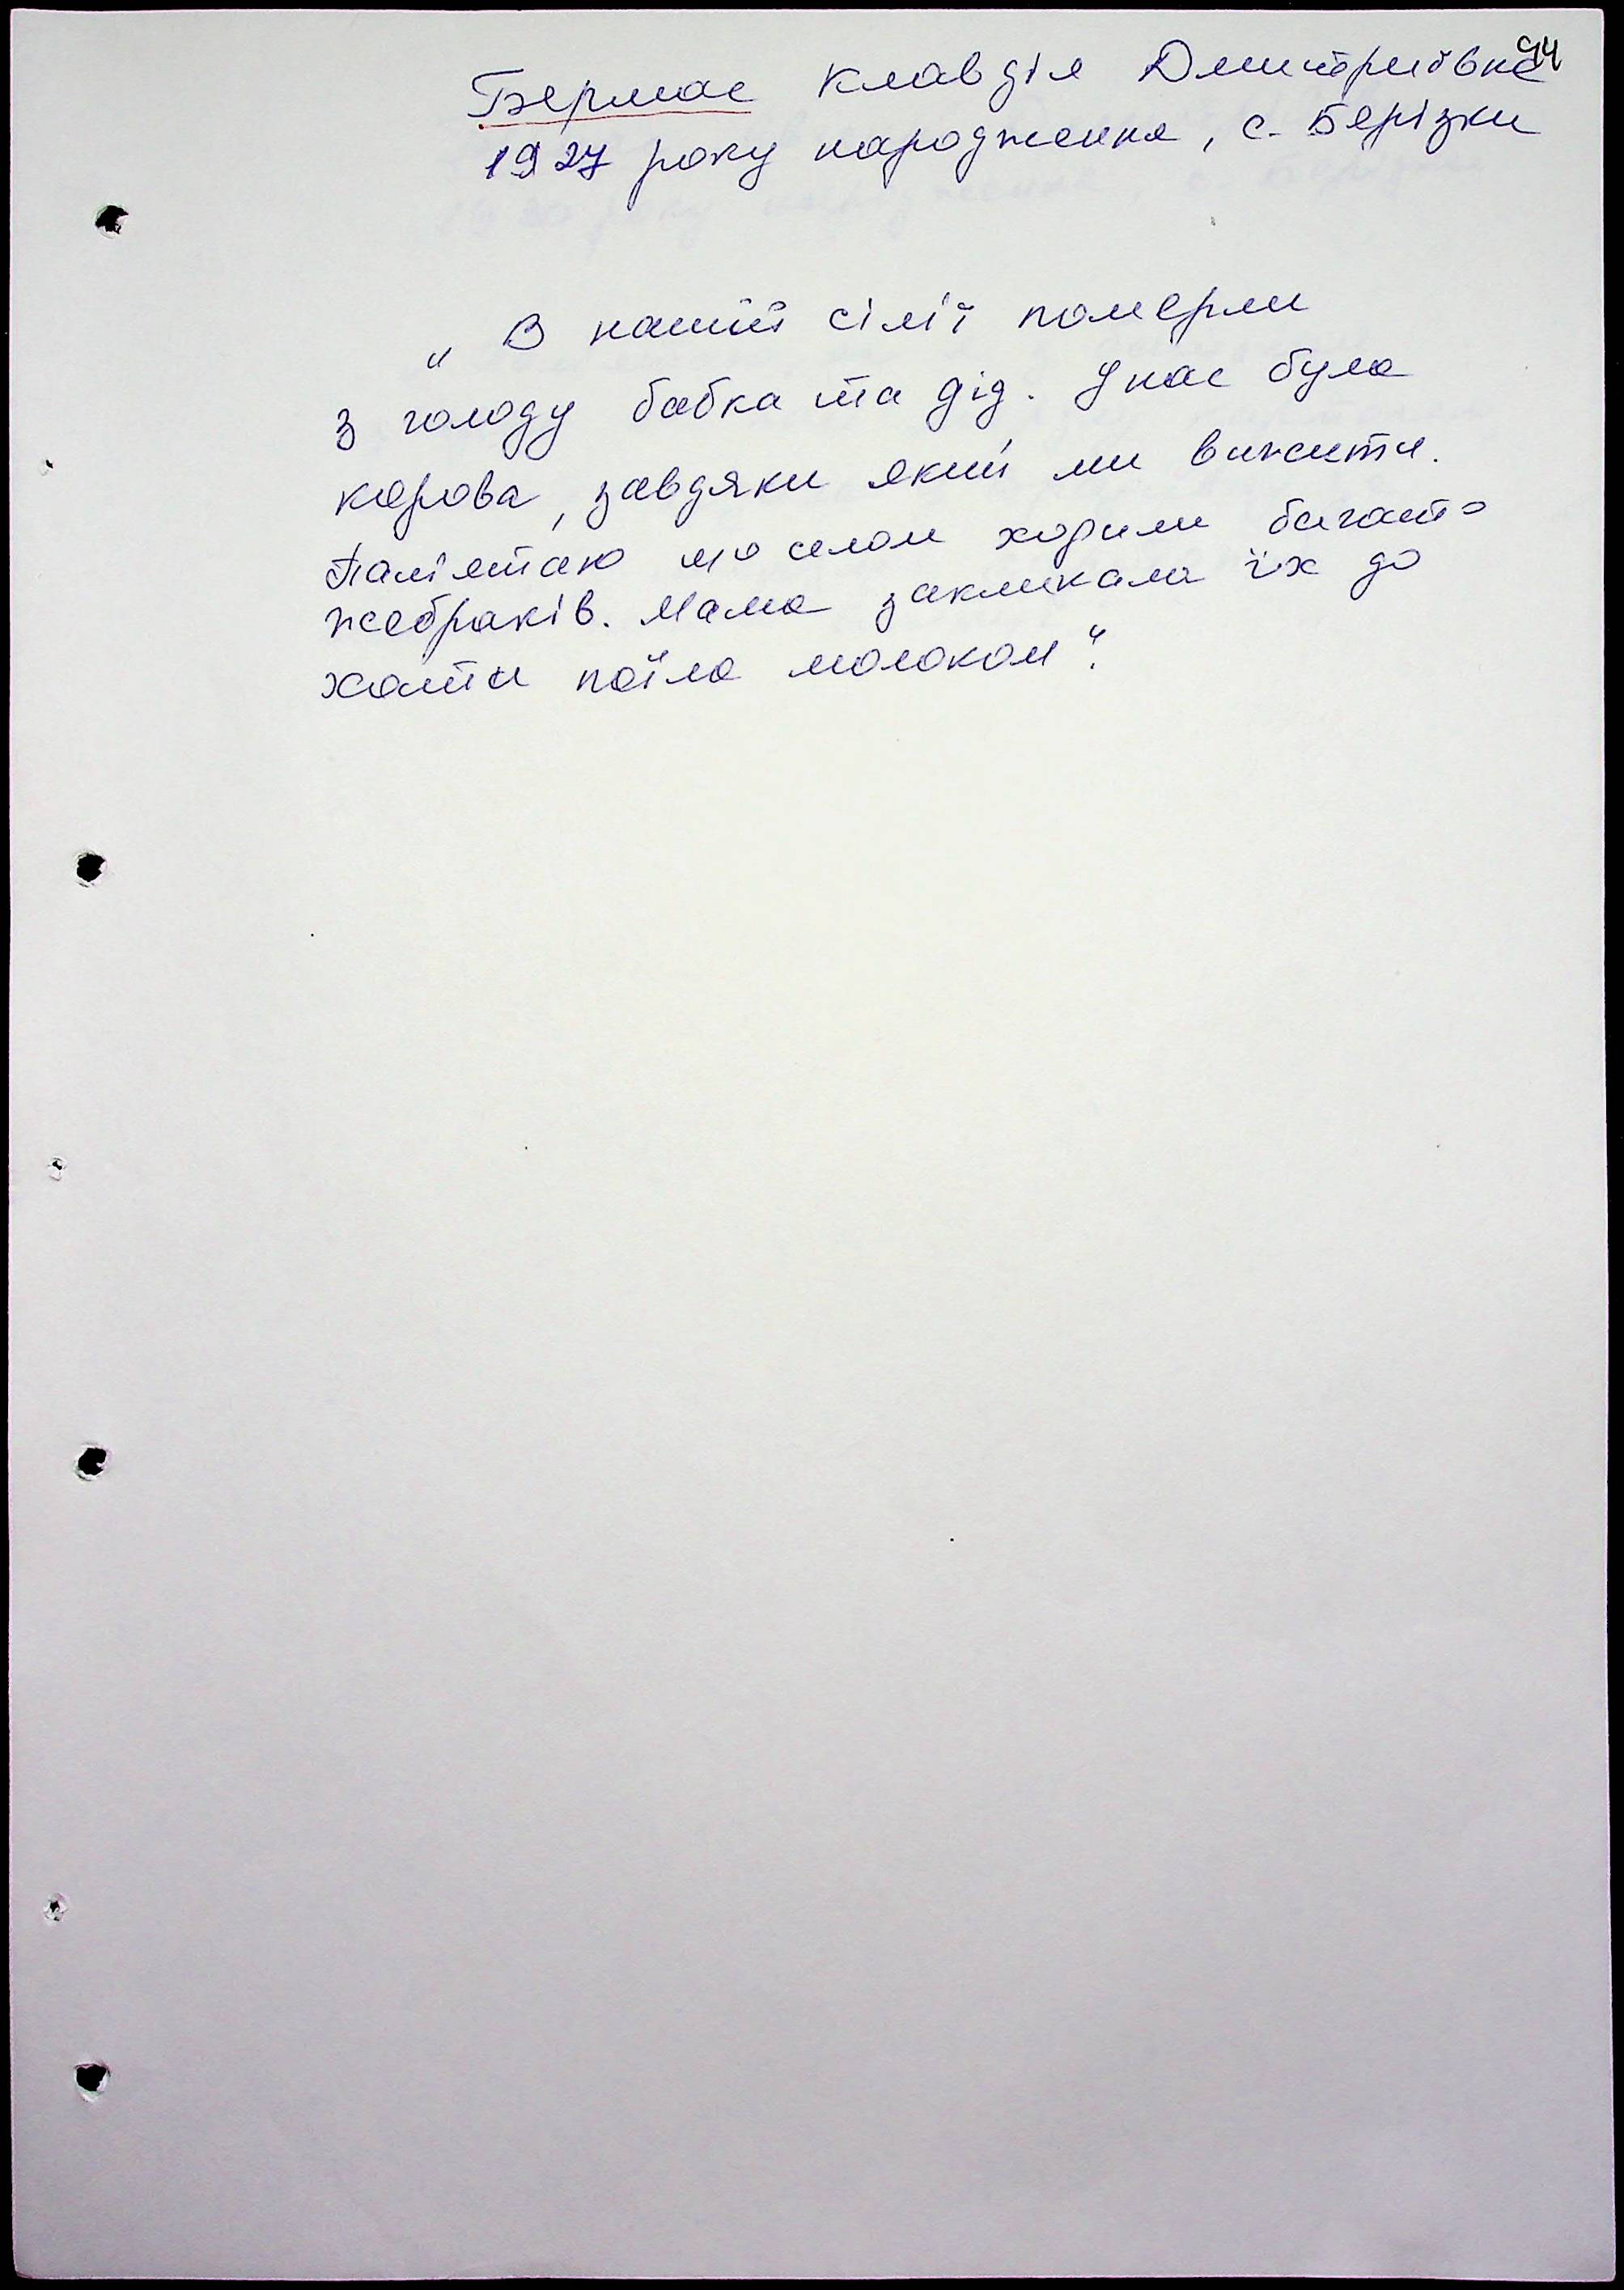 94
Бермас Клавдія Дмитриївна
1927 року народження, с. Берізки
„ В нашій сім'ї померли
з голоду бабка та дід. У нас була
корова, завдяки якій ми вижити.
Пам'ятаю що селом ходили багато
жебраків. Мама закликала їх до
хати поїла молоком".